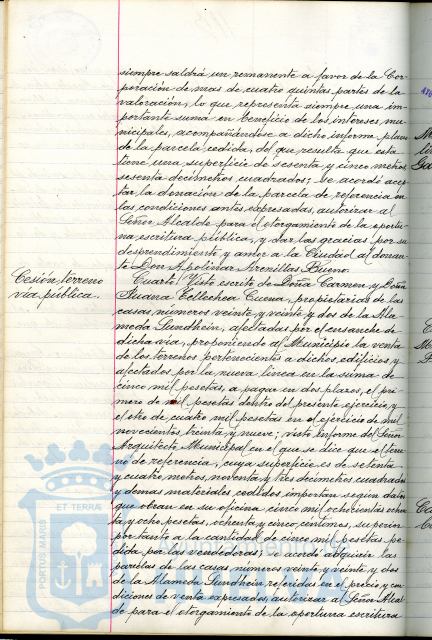 siempre saldrá un remanente a favor de la Cor-
poración de mas de cuatro quintas partes de la
valoración, lo que representa siempre una im-
portante suma en beneficio de los intereses mu-
nicipales, acompañándose a dicho informe plano
de la parcela cedida, del que resulta que esta
tiene una superficie de sesenta y cinco metros
sesenta decímetros cuadrados; se acordó acep-
tar la donación de la parcela de referencia en
las condiciones antes expresadas, autorizar al
Señor Alcalde para el otorgamiento de la oportu-
na escritura pública, y dar las gracias por su
desprendimiento y amor a la Ciudad al donan-
te Don Apolinar Arenillas Bueno.
Cesión terreno
via pública.
Cuarto! Visto escrito de Doña Carmen y Doña
Juana Tellechea Cuena, propietarias de las
casas números veinte y veinte y dos de la Ala-
meda Sundheim, afectadas por el ensanche de
dicha via, proponiendo al Municipio la venta
de los terrenos pertenecientes a dichos edificios y
afectados por la nueva linea en la suma de
cinco mil pesetas, a pagar en dos plazos, el pri-
mero de mil pesetas dentro del presente ejercicio y
el otro de cuatro mil pesetas en el ejercicio de mil
novecientos treinta y nueve; visto informe del Señor
Arquitecto Municipal en el que se dice que el terre-
no de referencia, cuya superficie es de setenta
y cuatro metros, noventa y tres decímetros cuadrados
y demas materiales cedidos importan segun datos
que obran en su oficina cinco mil ochocientas ochen-
ta y ocho pesetas, ochenta y cinco centimos, superior
por tanto a la cantidad de cinco mil pesetas pe-
dida por las vendedoras; se acordó adquirir las
parcelas de las casas números veinte y veinte y dos
de la Alameda Sundheim referidas en el precio y con-
diciones de venta expresados, autorizar al Señor Alcal-
de para el otorgamiento de la oportuna escritura
PORTUS MARIS ET TERRÆ